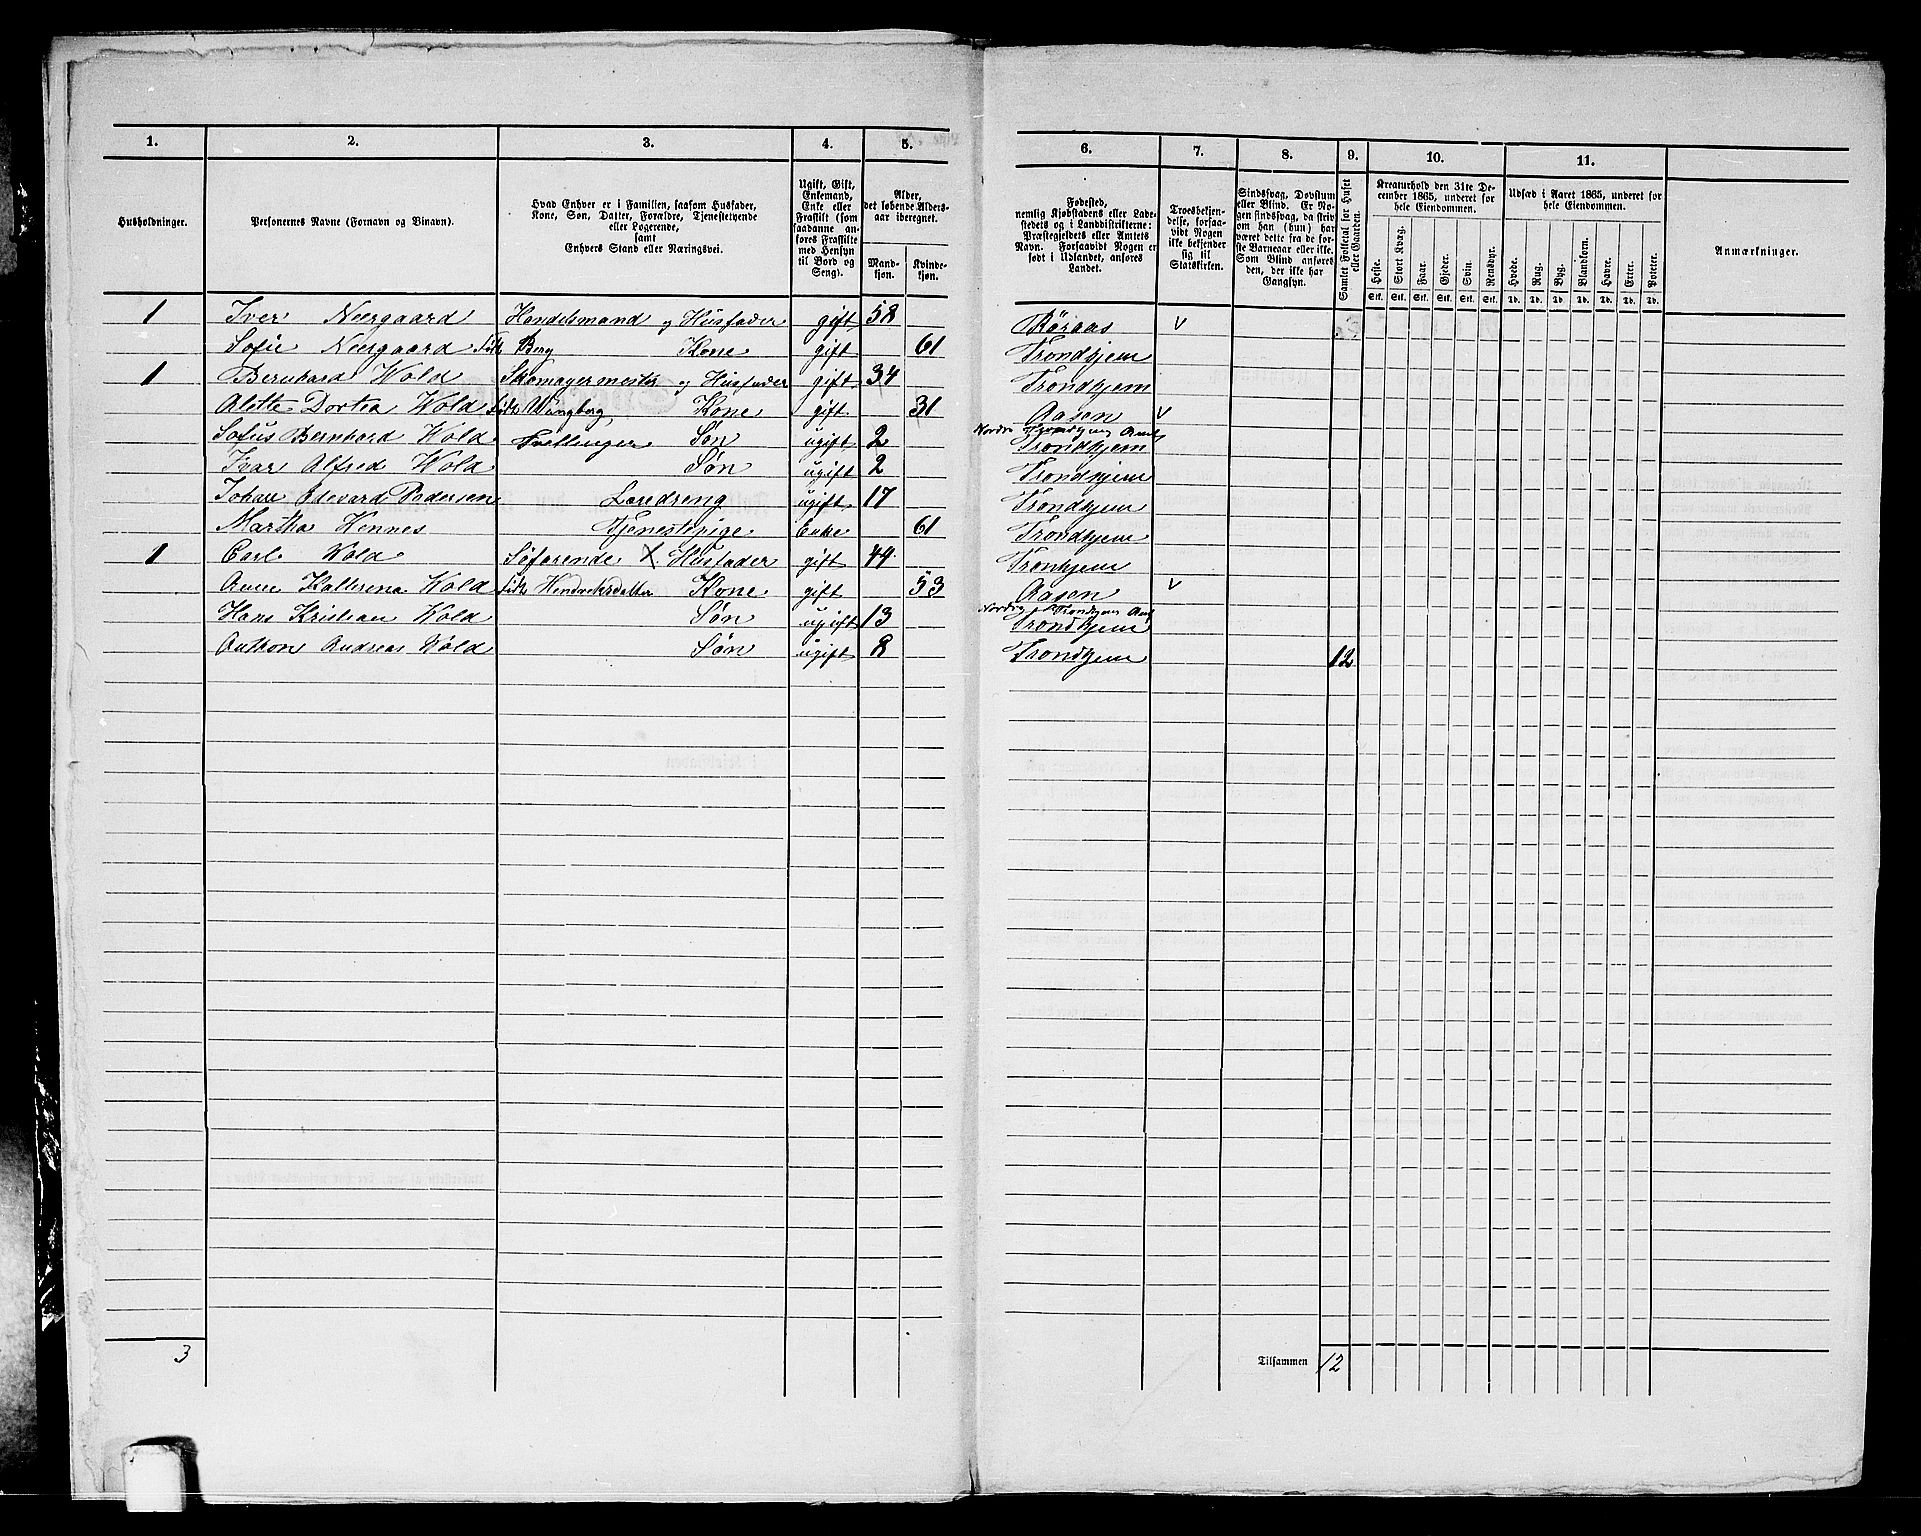 1. 2. 3. 4. 5.
Husholdninger.
Personernes Navne (Fornavn og Vinavn).
Hvad Enhver er i Familien, saasom Husfader,
Kone, Søn, Datter, Forældre, Tjenestetyende
eller Logerende,
samt
Enhvers Stand eller Næringsvei.
Ugift, Gift,
Enkemand,
Enke eller
Fraskilt (som
saadanne an-
føres Fraskilte
med Hensyn
til Bord og
Seng).
Alder,
det løbende Alders-
aar iberegnet.
Mand-
kjøn.
Kvinde-
kjøn.
6. 7. 8. 9. 10. 11.
Fødested,
nemlig Kjøbstadens eller Lade-
stedets og i Landdistrikterne:
Præstegjeldets eller Amtets
Navn. Forsaavidt Nogen er
født i Udlandet, anføres
Landet.
Troesbekjen-
delse, forsaa-
vidt Nogen
ikke bekjender
sig til
Statskirken.
Sindssvag, Døvstum
eller Blind. Er No-
gen sindssvag, da skriv
om han (hun) har
været dette fra de før-
ste Barneaar eller ikke.
Som Blind anføres
den, der ikke har
Gangsyn.
Samlet Folketal for Huset
eller Gaarden.
Kreaturhold den 31te De-
cember 1865, underet for
hele Eiendommen.
Heste. Stort Kvæg. Faar. Gjeder. Svin. Rensdyr.
Stk. Stk. Stk. Stk. Stk. Stk.
Udsæd i Aaret 1865, underet for
hele Eiendommen.
Hvede. Rug. Byg. Blandkorn. Havre. Erter. Poteter.
Td. Td. Td. Td. Td. Td. Td.
Anmærkninger.
1 Iver Neergaard Handelsmand og Husfader gift 58 Röraas v
Sofie Neergaard föd Berg Kone gift 61 Trondhjem
1 Bernhard Wold Skomagermester og Husfader gift 34 Trondhjem
Alette Dortea Wold föd Wangberg Kone gift 31 Aasen v
Nordre Trondhjems Amt
Sofus Bernhard Wold Tvellinger Søn ugift 2 Trondhjem
Ivar Alfred Wold Søn ugift 2 Trondhjem
Johan Edevard Pedersen Læredreng ugift 17 Trondhjem
Martha Hennes Tjenestepige Enke 61 Trondhjem
1 Carl Wold Söfarende X Husfader gift 44 Tronhjem
Anne Katterena Wold föd Hendreksdatter Kone gift 53 Aasen v
Nordre Trondhjems Amt
Hans Kristian Wold Søn ugift 13 Trondhjem
Anthon Andreas Wold Søn ugift 8 Trondhjem 12
3
Tilsammen 12